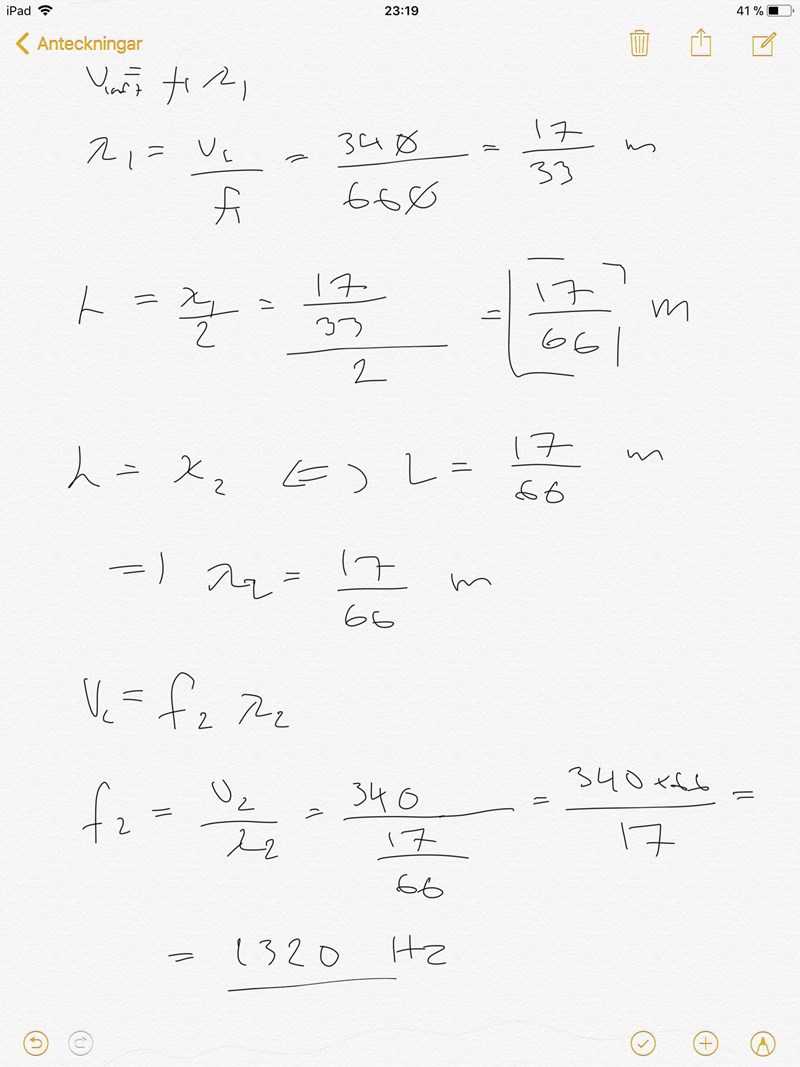 iPad 23:19 41 %
Anteckningar
V_luft = f₁ λ₁
λ₁ = V_L / f₁ = 340 / 660 = 17/33 m
L = λ₁/2 = (17/33)/2 = 17/66 m
L = λ₂ <=> L = 17/66 m
=) λ₂ = 17/66 m
V_L = f₂ λ₂
f₂ = V₂/λ₂ = 340/(17/66) = 340×66/17 =
= 1320 Hz